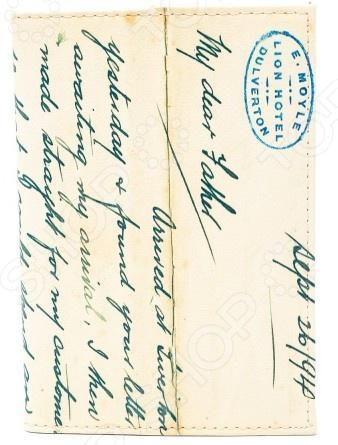 E. MOYLE
LION HOTEL
DULVERTON
Sept 26/94
My dear Father
Arrived at Tiverton
yesterday & found your letter
awaiting my arrival, I then
made straight for my custome